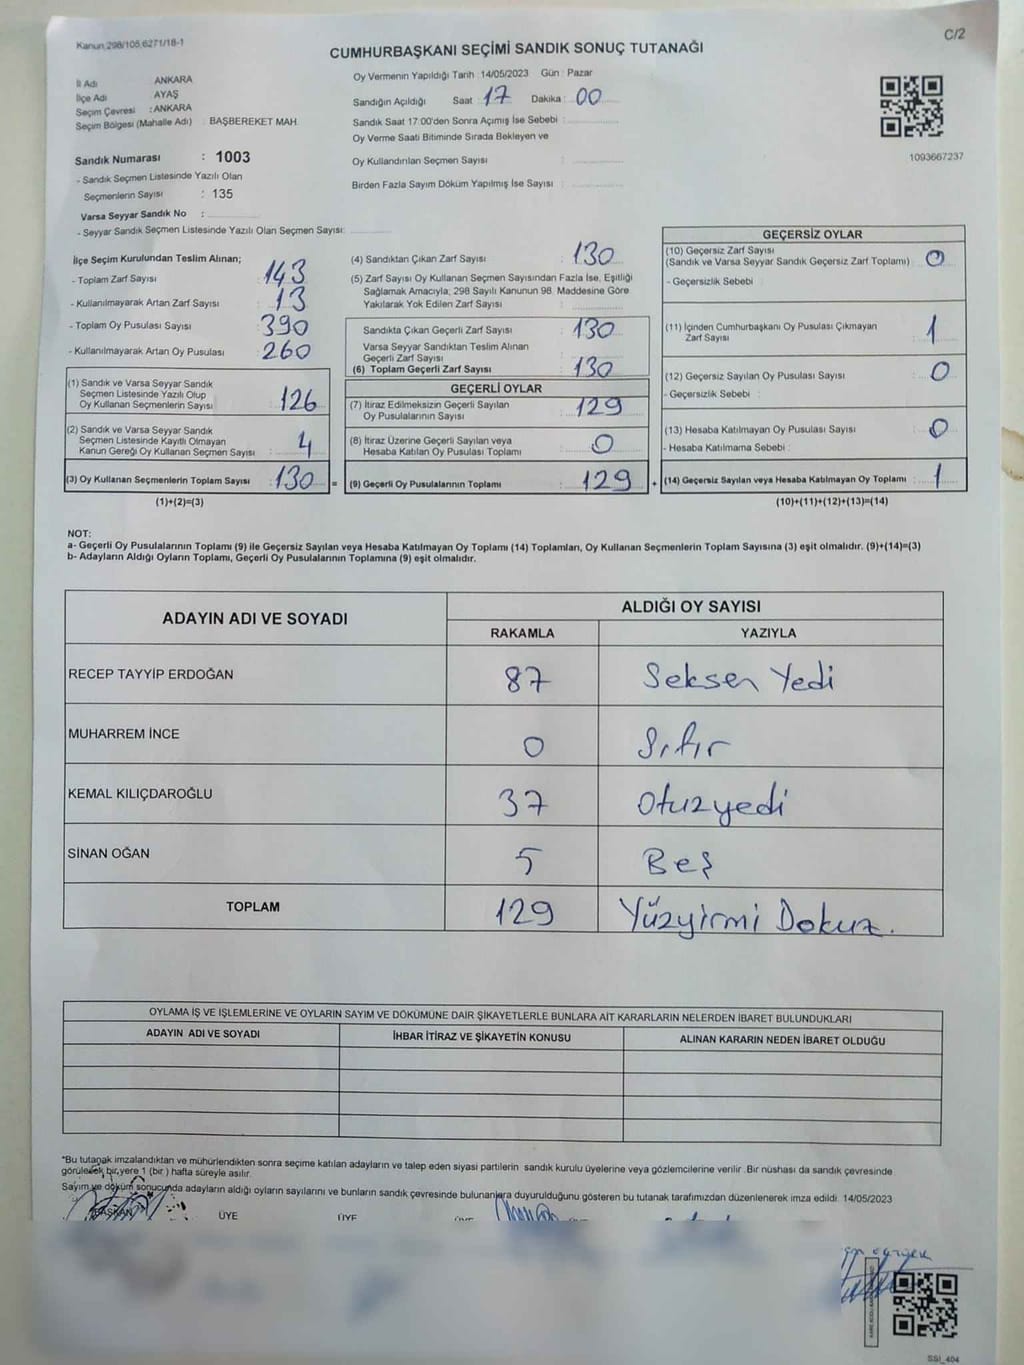 Kanun,298/105,6271/18-1
C/2
CUMHURBAŞKANI SEÇİMİ SANDIK SONUÇ TUTANAĞI
İl Adı ANKARA
İlçe Adı AYAŞ
Seçim Çevresi : ANKARA
Seçim Bölgesi (Mahalle Adı) : BAŞBEREKET MAH.
Sandık Numarası : 1003
- Sandık Seçmen Listesinde Yazılı Olan
Seçmenlerin Sayısı : 135
Varsa Seyyar Sandık No :
- Seyyar Sandık Seçmen Listesinde Yazılı Olan Seçmen Sayısı:
Oy Vermenin Yapıldığı Tarih : 14/05/2023 Gün : Pazar
Sandığın Açıldığı Saat : 17 Dakika : 00
Sandık Saat 17:00'den Sonra Açımış İse Sebebi :
Oy Verme Saati Bitiminde Sırada Bekleyen ve
Oy Kullandırılan Seçmen Sayısı :
Birden Fazla Sayım Döküm Yapılmış İse Sayısı :
1093667237
İlçe Seçim Kurulundan Teslim Alınan;
- Toplam Zarf Sayısı : 143
- Kullanılmayarak Artan Zarf Sayısı : 13
- Toplam Oy Pusulası Sayısı : 390
- Kullanılmayarak Artan Oy Pusulası : 260
(1) Sandık ve Varsa Seyyar Sandık
Seçmen Listesinde Yazılı Olup
Oy Kullanan Seçmenlerin Sayısı : 126
(2) Sandık ve Varsa Seyyar Sandık
Seçmen Listesinde Kayıtlı Olmayan
Kanun Gereği Oy Kullanan Seçmen Sayısı : 4
(3) Oy Kullanan Seçmenlerin Toplam Sayısı : 130 =
(1)+(2)=(3)
(4) Sandıktan Çıkan Zarf Sayısı : 130
(5) Zarf Sayısı Oy Kullanan Seçmen Sayısından Fazla İse, Eşitliği
Sağlamak Amacıyla, 298 Sayılı Kanunun 98. Maddesine Göre
Yakılarak Yok Edilen Zarf Sayısı :
Sandıkta Çıkan Geçerli Zarf Sayısı : 130
Varsa Seyyar Sandıktan Teslim Alınan
Geçerli Zarf Sayısı :
(6) Toplam Geçerli Zarf Sayısı : 130
GEÇERLİ OYLAR
(7) İtiraz Edilmeksizin Geçerli Sayılan
Oy Pusulalarının Sayısı : 129
(8) İtiraz Üzerine Geçerli Sayılan veya
Hesaba Katılan Oy Pusulası Toplamı : 0
(9) Geçerli Oy Pusulalarının Toplamı : 129 +
GEÇERSİZ OYLAR
(10) Geçersiz Zarf Sayısı
(Sandık ve Varsa Seyyar Sandık Geçersiz Zarf Toplamı) : 0
- Geçersizlik Sebebi :
(11) İçinden Cumhurbaşkanı Oy Pusulası Çıkmayan
Zarf Sayısı : 1
(12) Geçersiz Sayılan Oy Pusulası Sayısı : 0
- Geçersizlik Sebebi :
(13) Hesaba Katılmayan Oy Pusulası Sayısı : 0
- Hesaba Katılmama Sebebi :
(14) Geçersiz Sayılan veya Hesaba Katılmayan Oy Toplamı : 1
(10)+(11)+(12)+(13)=(14)
NOT:
a- Geçerli Oy Pusulalarının Toplamı (9) ile Geçersiz Sayılan veya Hesaba Katılmayan Oy Toplamı (14) Toplamları, Oy Kullanan Seçmenlerin Toplam Sayısına (3) eşit olmalıdır. (9)+(14)=(3)
b- Adayların Aldığı Oyların Toplamı, Geçerli Oy Pusulalarının Toplamına (9) eşit olmalıdır.
ADAYIN ADI VE SOYADI ALDIĞI OY SAYISI
RAKAMLA YAZIYLA
RECEP TAYYİP ERDOĞAN 87 Seksen Yedi
MUHARREM İNCE 0 Sıfır
KEMAL KILIÇDAROĞLU 37 Otuzyedi
SİNAN OĞAN 5 Beş
TOPLAM 129 Yüzyirmi Dokuz.
OYLAMA İŞ VE İŞLEMLERİNE VE OYLARIN SAYIM VE DÖKÜMÜNE DAİR ŞİKAYETLERLE BUNLARA AİT KARARLARIN NELERDEN İBARET BULUNDUKLARI
ADAYIN ADI VE SOYADI İHBAR İTİRAZ VE ŞİKAYETİN KONUSU ALINAN KARARIN NEDEN İBARET OLDUĞU
*Bu tutanak imzalandıktan ve mühürlendikten sonra seçime katılan adayların ve talep eden siyasi partilerin sandık kurulu üyelerine veya gözlemcilerine verilir .Bir nüshası da sandık çevresinde
görülecek bir yere 1 (bir ) hafta süreyle asılır.
Sayım ve döküm sonucunda adayların aldığı oyların sayılarını ve bunların sandık çevresinde bulunanlara duyurulduğunu gösteren bu tutanak tarafımızdan düzenlenerek imza edildi. 14/05/2023
BAŞKAN ÜYE ÜYE
SSI_404